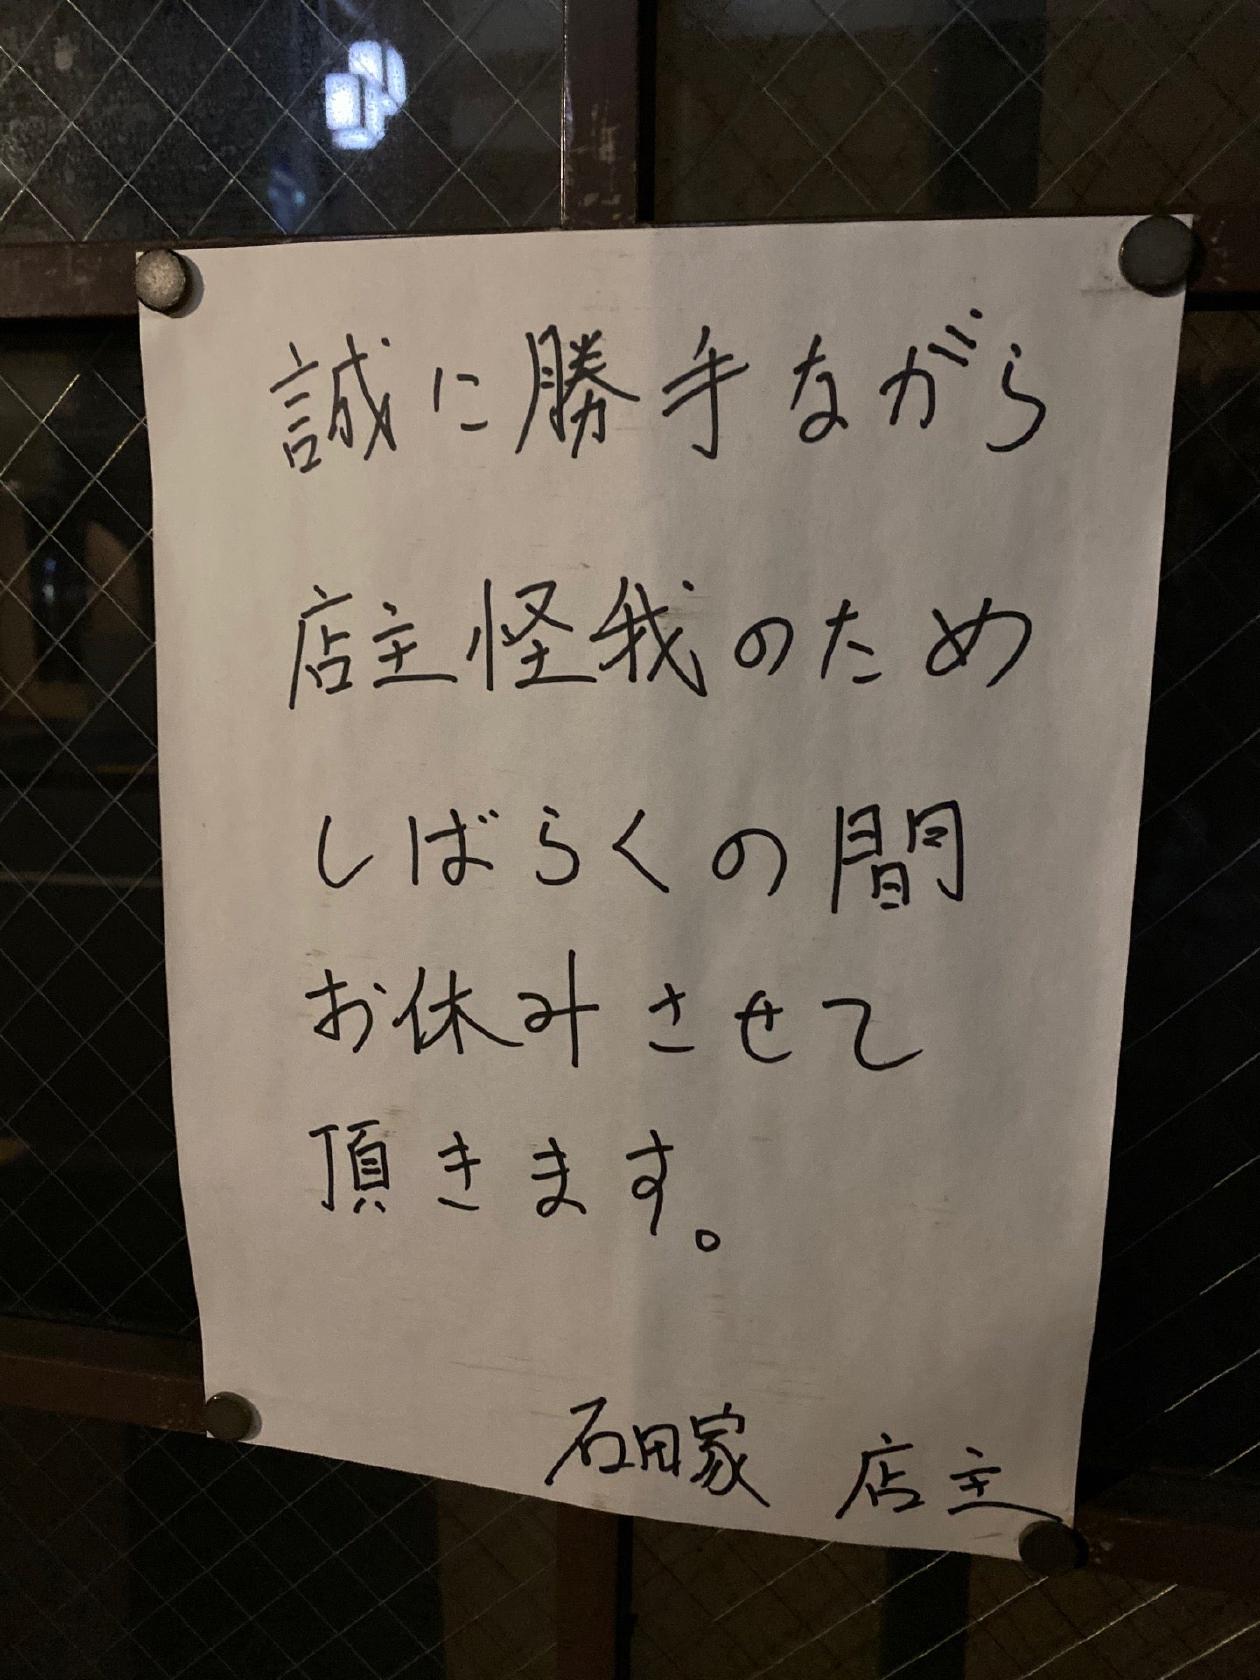 誠に勝手ながら
店主怪我のため
しばらくの間
お休みさせて
頂きます。
石田家 店主